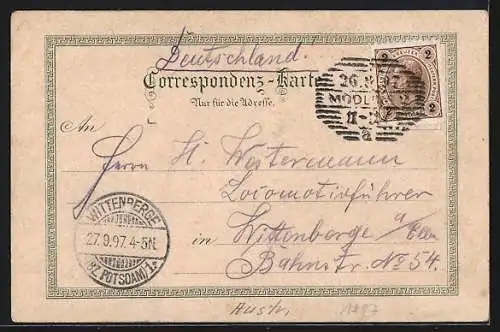 Deutschland.
Correspondenz-Karte
Nur für die Adresse.
2 KREUZER 2
2 2
26. 9. 97
MÖDLING 2
11-
a
An
Herrn H. Westermann
Locomotivführer
in Wittenberge a/Elbe
Bahnstr. No 54.
WITTENBERGE
27.9.97. 4-5N.
(BZ. POTSDAM) 1*
Austr. 1897